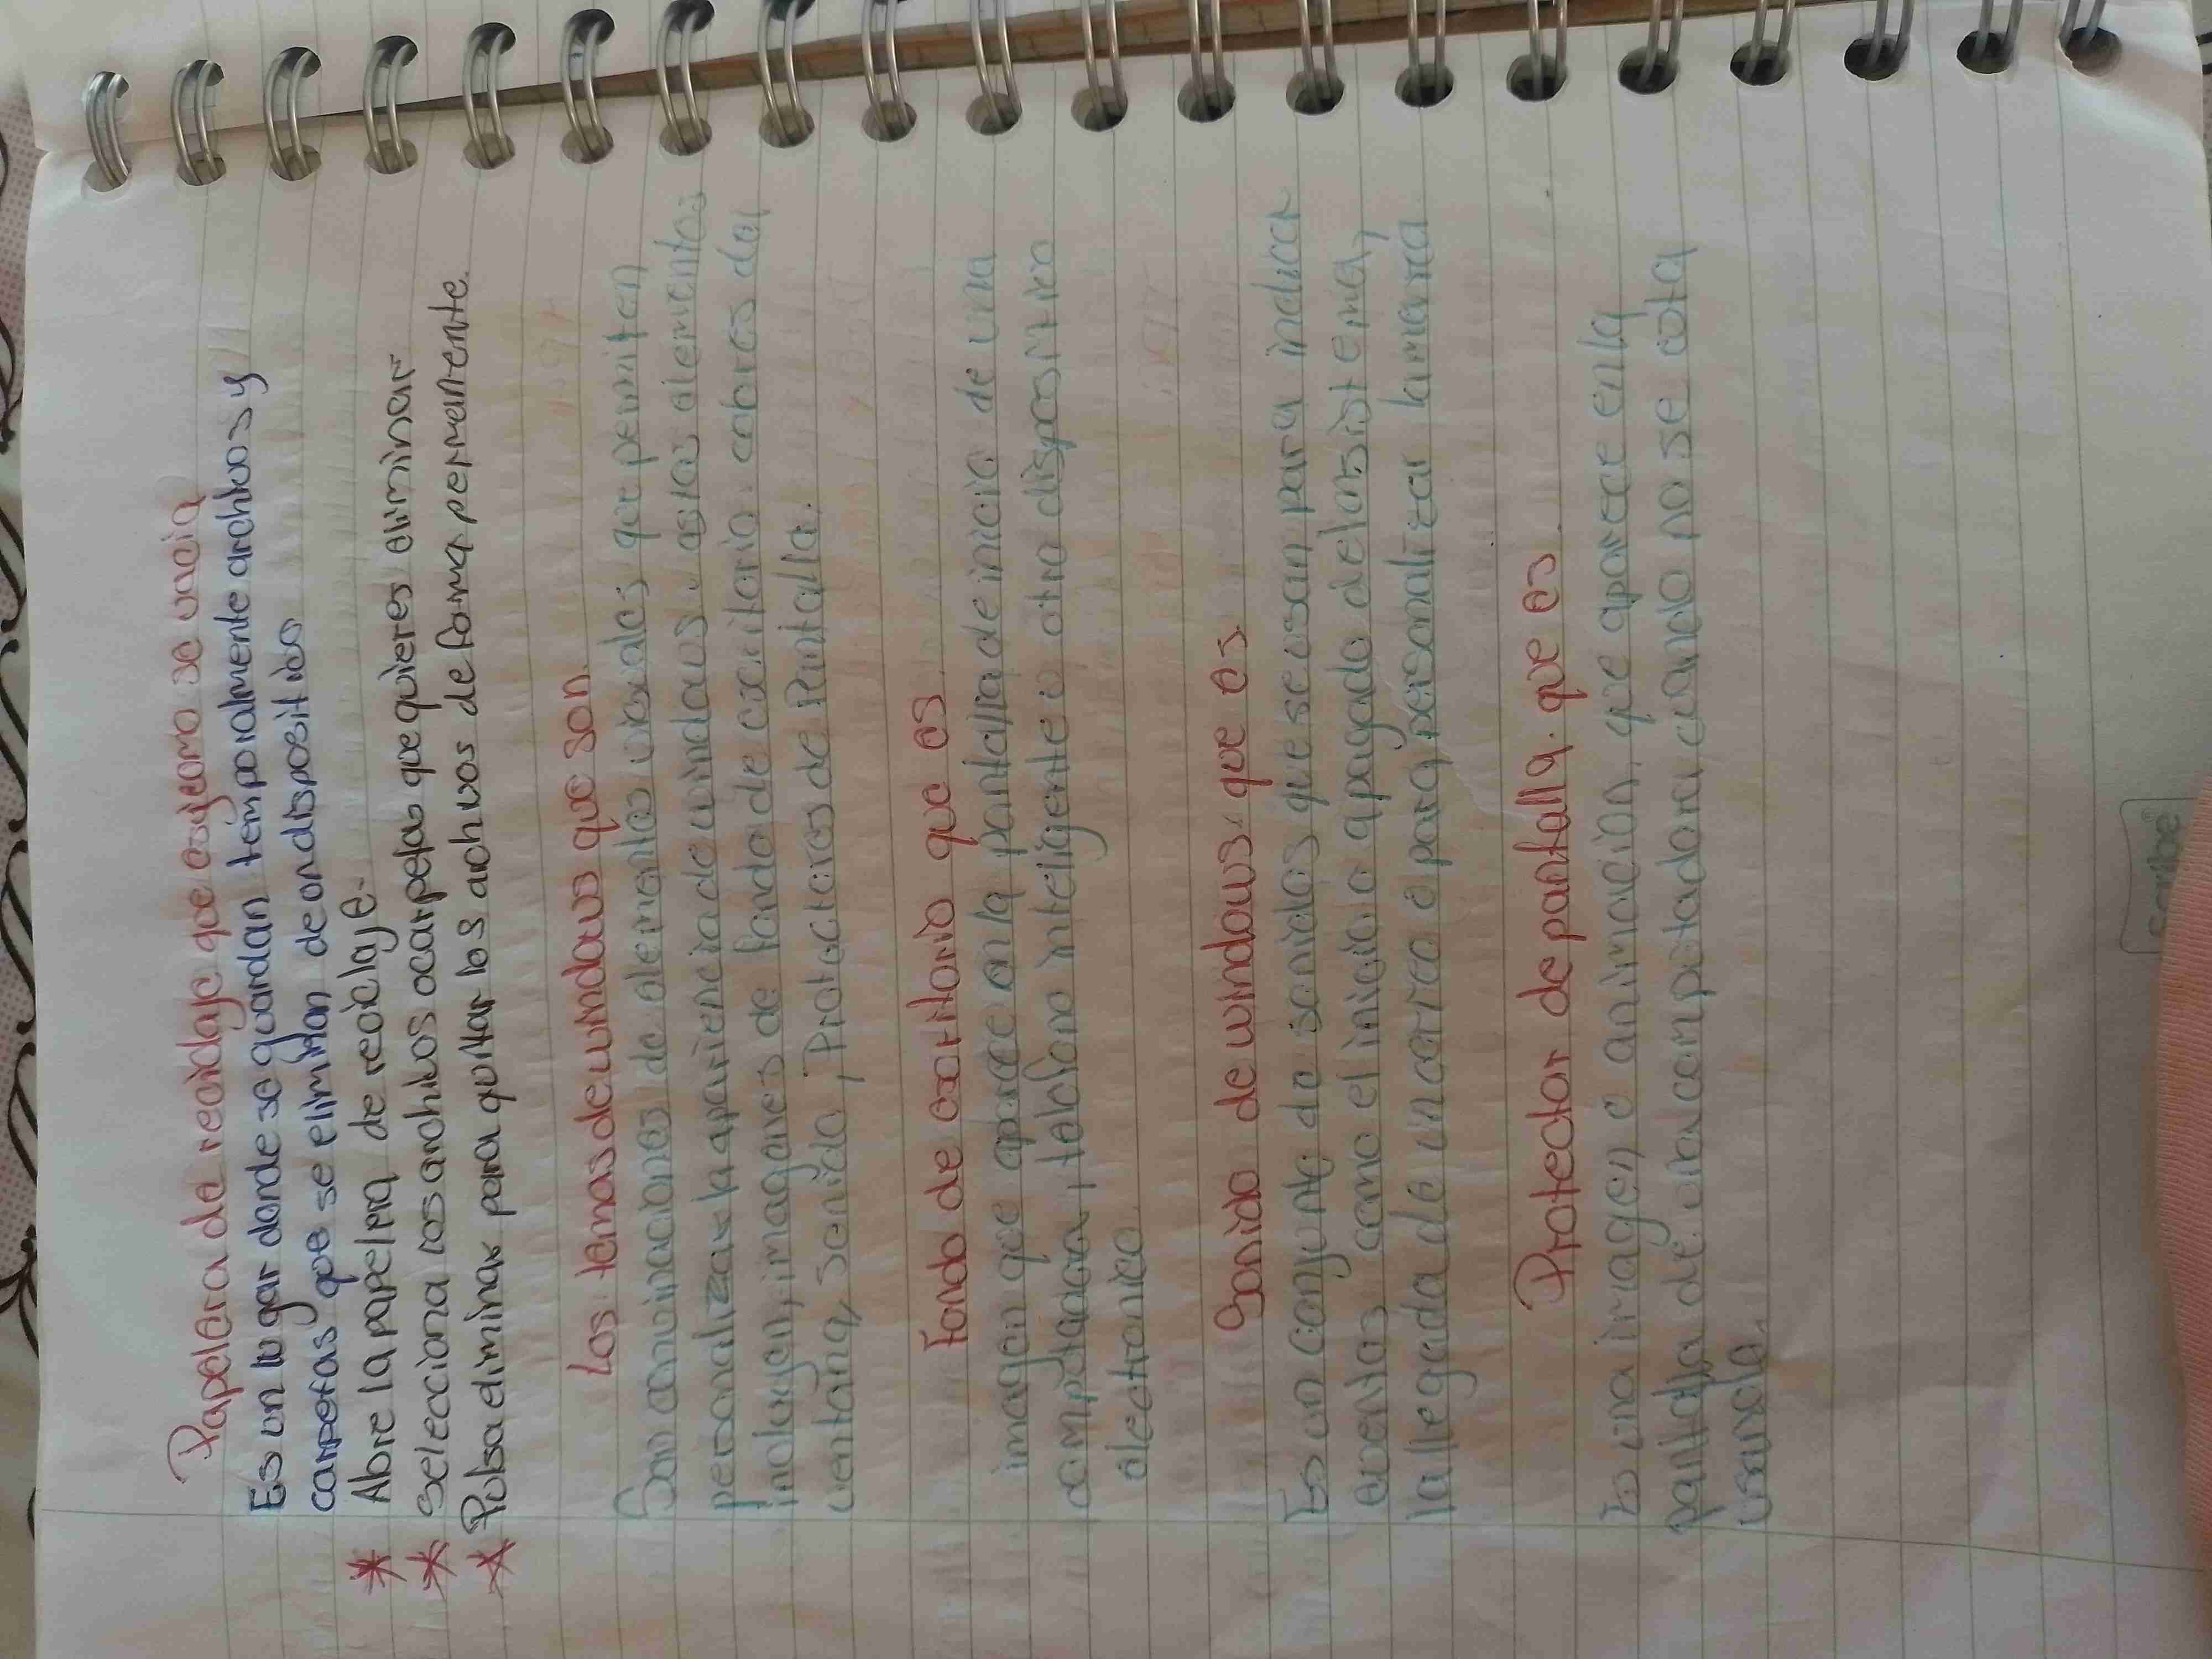 Papelera de reciclaje que es y como se vacia
Es un lugar donde se guardan temporalmente archivos y
carpetas que se eliminan de un dispositivo
* Abre la papelera de reciclaye.
* selecciona los archivos o carpetas que quieres eliminar
* Pulsa eliminar para quitar los achivos de forma permanente.
Los temas de windows que son.
Son convinaciones de elementos visuales que permiten
personalizar la apariencia de windows. estos elementos
incluyen, imagenes de fondo de escritorio. colores de
ventana, sonido, Protectores de Pantalla.
Fondo de escritorio que es.
imagen que aparece en la pantalla de inicio de una
computadora, telefono inteligente u otro dispositivo
electronico.
Sonido de windows. que es.
Es un conjunto de sonidos que se usan para indicar
eventos como el inicio o apagado del sistema,
la llegada de un correo o para personalizar la
Protector de pantalla. que es.
Es una imagen o animacion, que aparece en la
pantalla de una computadora cuando no se esta
usando.
scribe®